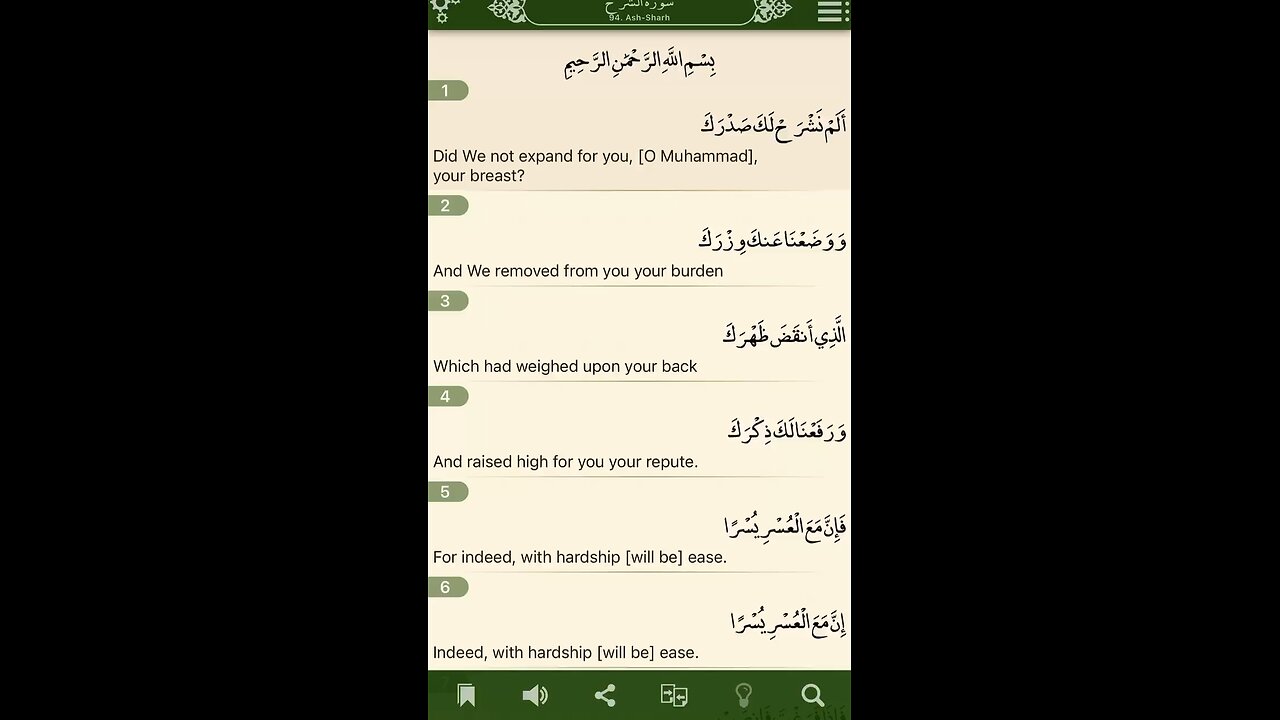 سورة الشرح
94. Ash-Sharh
بِسْمِ اللَّهِ الرَّحْمَٰنِ الرَّحِيمِ
1
أَلَمْ نَشْرَحْ لَكَ صَدْرَكَ
Did We not expand for you, [O Muhammad],
your breast?
2
وَوَضَعْنَا عَنكَ وِزْرَكَ
And We removed from you your burden
3
الَّذِي أَنقَضَ ظَهْرَكَ
Which had weighed upon your back
4
وَرَفَعْنَا لَكَ ذِكْرَكَ
And raised high for you your repute.
5
فَإِنَّ مَعَ الْعُسْرِ يُسْرًا
For indeed, with hardship [will be] ease.
6
إِنَّ مَعَ الْعُسْرِ يُسْرًا
Indeed, with hardship [will be] ease.
7